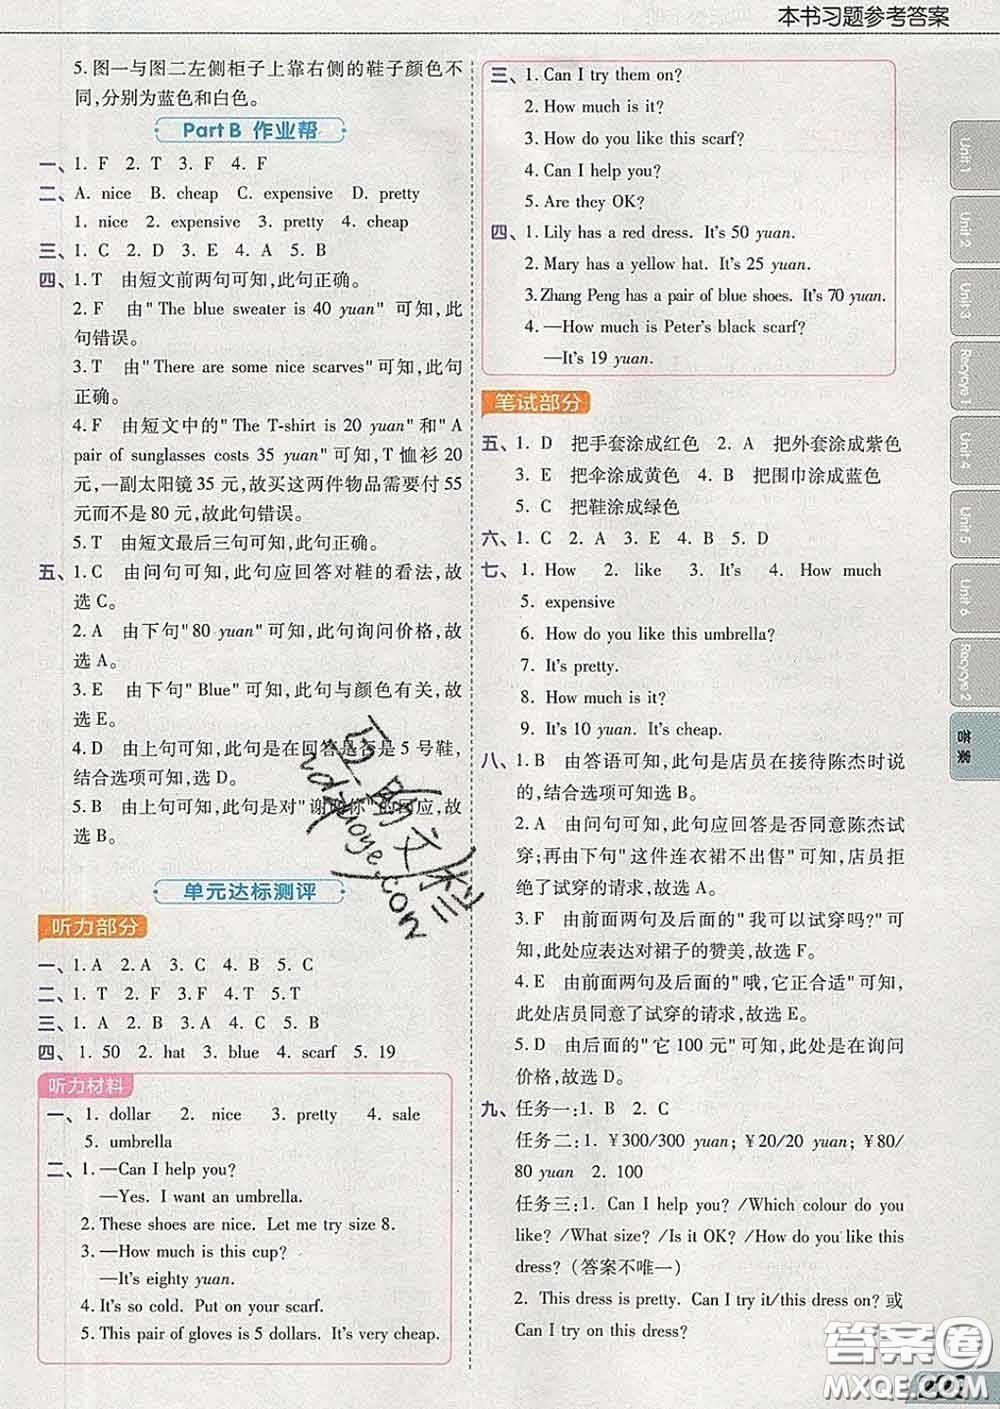 本书习题参考答案
5. 图一与图二左侧柜子上靠右侧的鞋子颜色不
同,分别为蓝色和白色。
Part B 作业帮
一、1. F 2. T 3. F 4. F
二、A. nice B. cheap C. expensive D. pretty
1. nice 2. expensive 3. pretty 4. cheap
三、1. C 2. D 3. E 4. A 5. B
四、1. T 由短文前两句可知,此句正确。
2. F 由"The blue sweater is 40 yuan"可知,此
句错误。
3. T 由"There are some nice scarves"可知,此句
正确。
4. F 由短文中的"The T-shirt is 20 yuan"和"A
pair of sunglasses costs 35 yuan"可知,T恤衫 20
元,一副太阳镜 35 元,故买这两件物品需要付 55
元而不是 80 元,故此句错误。
5. T 由短文最后三句可知,此句正确。
五、1. C 由问句可知,此句应回答对鞋的看法,故
选 C。
2. A 由下句"80 yuan"可知,此句询问价格,故
选 A。
3. E 由下句"Blue"可知,此句与颜色有关,故
选 E。
4. D 由上句可知,此句是在回答是否是 5 号鞋,
结合选项可知,选 D。
5. B 由上句可知,此句是对"谢谢你"的回应,故
选 B。
单元达标测评
听力部分
一、1. A 2. A 3. C 4. B 5. C
二、1. T 2. F 3. F 4. T 5. T
三、1. A 2. B 3. A 4. C 5. B
四、1. 50 2. hat 3. blue 4. scarf 5. 19
听力材料
一、1. dollar 2. nice 3. pretty 4. sale
5. umbrella
二、1. —Can I help you?
—Yes. I want an umbrella.
2. These shoes are nice. Let me try size 8.
3. —How much is this cup?
—It's eighty yuan.
4. It's so cold. Put on your scarf.
5. This pair of gloves is 5 dollars. It's very cheap.
三、1. Can I try them on?
2. How much is it?
3. How do you like this scarf?
4. Can I help you?
5. Are they OK?
四、1. Lily has a red dress. It's 50 yuan.
2. Mary has a yellow hat. It's 25 yuan.
3. Zhang Peng has a pair of blue shoes. It's 70 yuan.
4. —How much is Peter's black scarf?
—It's 19 yuan.
笔试部分
五、1. D 把手套涂成红色 2. A 把外套涂成紫色
3. E 把伞涂成黄色 4. B 把围巾涂成蓝色
5. C 把鞋涂成绿色
六、1. C 2. A 3. E 4. B 5. D
七、1. How 2. like 3. It's 4. How much
5. expensive
6. How do you like this umbrella?
7. It's pretty.
8. How much is it?
9. It's 10 yuan. It's cheap.
八、1. B 由答语可知,此句是店员在接待陈杰时说
的,结合选项可知选 B。
2. A 由问句可知,此句应回答是否同意陈杰试
穿;再由下句"这件连衣裙不出售"可知,店员拒
绝了试穿的请求,故选 A。
3. F 由前面两句及后面的"我可以试穿吗?"可
知,此处应表达对裙子的赞美,故选 F。
4. E 由前面两句及后面的"哦,它正合适"可知,
此处店员同意了试穿的请求,故选 E。
5. D 由后面的"它 100 元"可知,此处是在询问
价格,故选 D。
九、任务一:1. B 2. C
任务二:1. ¥300/300 yuan; ¥20/20 yuan; ¥80/
80 yuan 2. 100
任务三:1. Can I help you? /Which colour do you
like? /What size? /Is it OK? /How do you like this
dress? (答案不唯一)
2. This dress is pretty. Can I try it/this dress on? 或
Can I try on this dress?
Unit 1
Unit 2
Unit 3
Recycle 1
Unit 4
Unit 5
Unit 6
Recycle 2
答案
答案圈
MXQE.COM